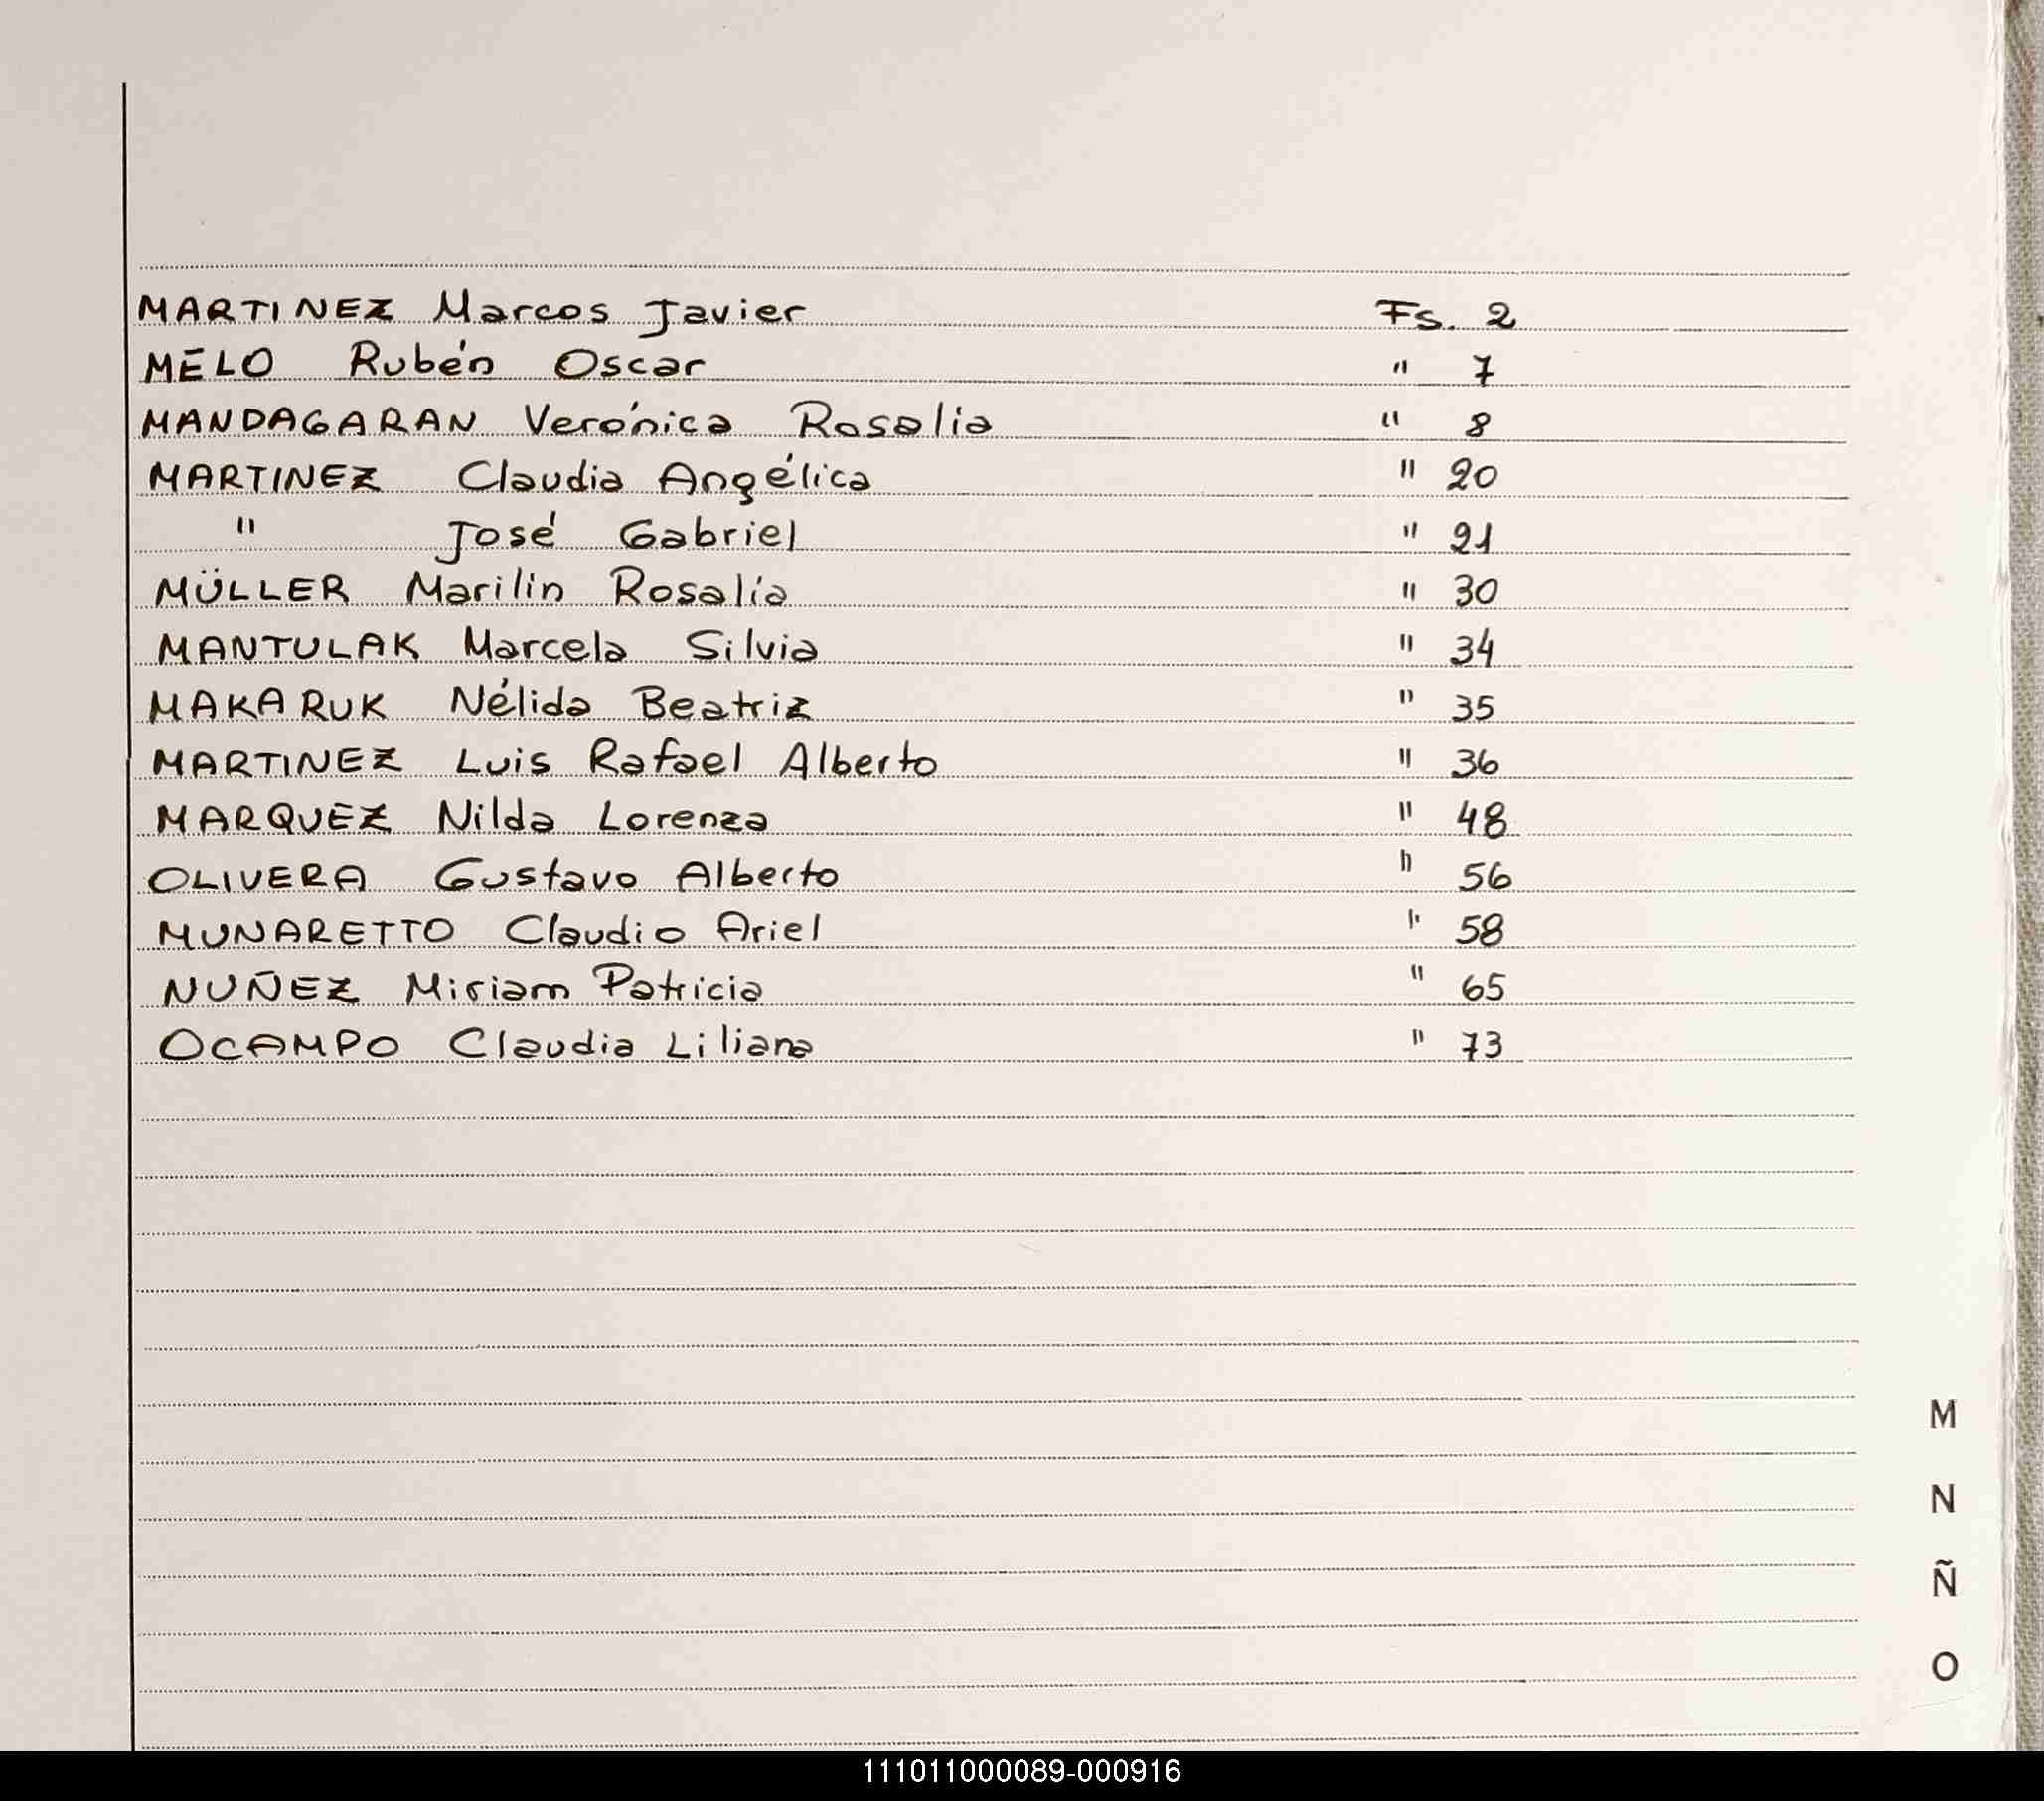 MARTINEZ Marcos Javier Fs. 2
MELO Rubén Oscar " 7
MANDAGARAN Verónica Rosalia " 8
MARTINEZ Claudia Angélica " 20
" José Gabriel " 21
MÜLLER Marilín Rosalía " 30
MANTULAK Marcela Silvia " 34
MAKARUK Nélida Beatriz " 35
MARTINEZ Luis Rafael Alberto " 36
MARQUEZ Nilda Lorenza " 48
OLIVERA Gustavo Alberto " 56
MUNARETTO Claudio Ariel " 58
NUÑEZ Miriam Patricia " 65
OCAMPO Claudia Liliana " 73
M
N
Ñ
O
111011000089-000916